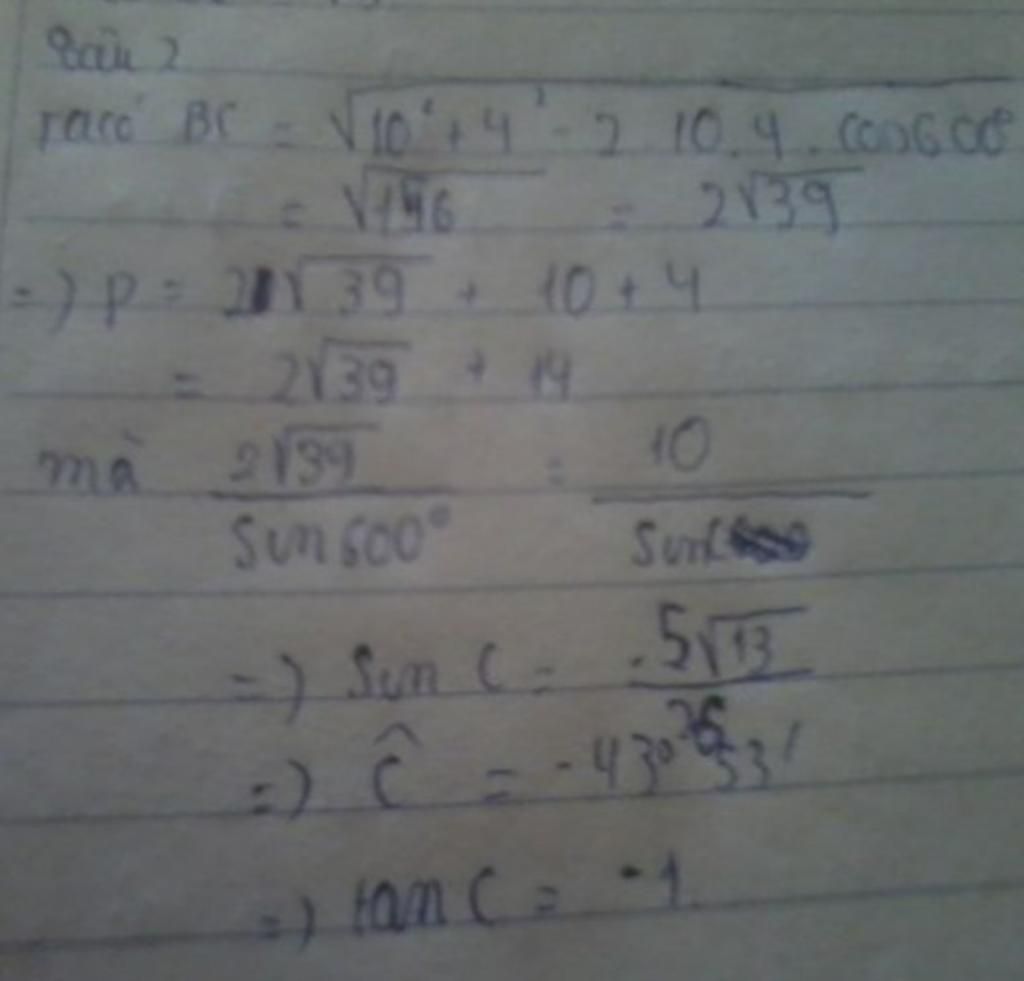 Câu 2
Ta có BC = √(10² + 4² - 2 . 10 . 4 . cos600°)
= √156 = 2√39
=) P = 2√39 + 10 + 4
= 2√39 + 14
mà 2√39 / sin600° = 10 / sinC
=) sin C = -5√13 / 26
=) Ĉ = -43°53'
=) tan C = -1